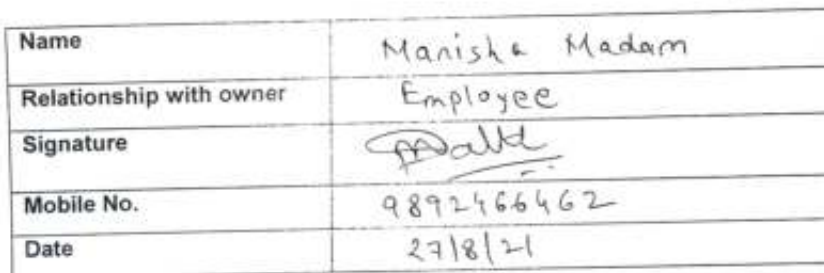 Name Manisha Madam
Relationship with owner Employee
Signature
Mobile No. 9892466462
Date 27/8/21